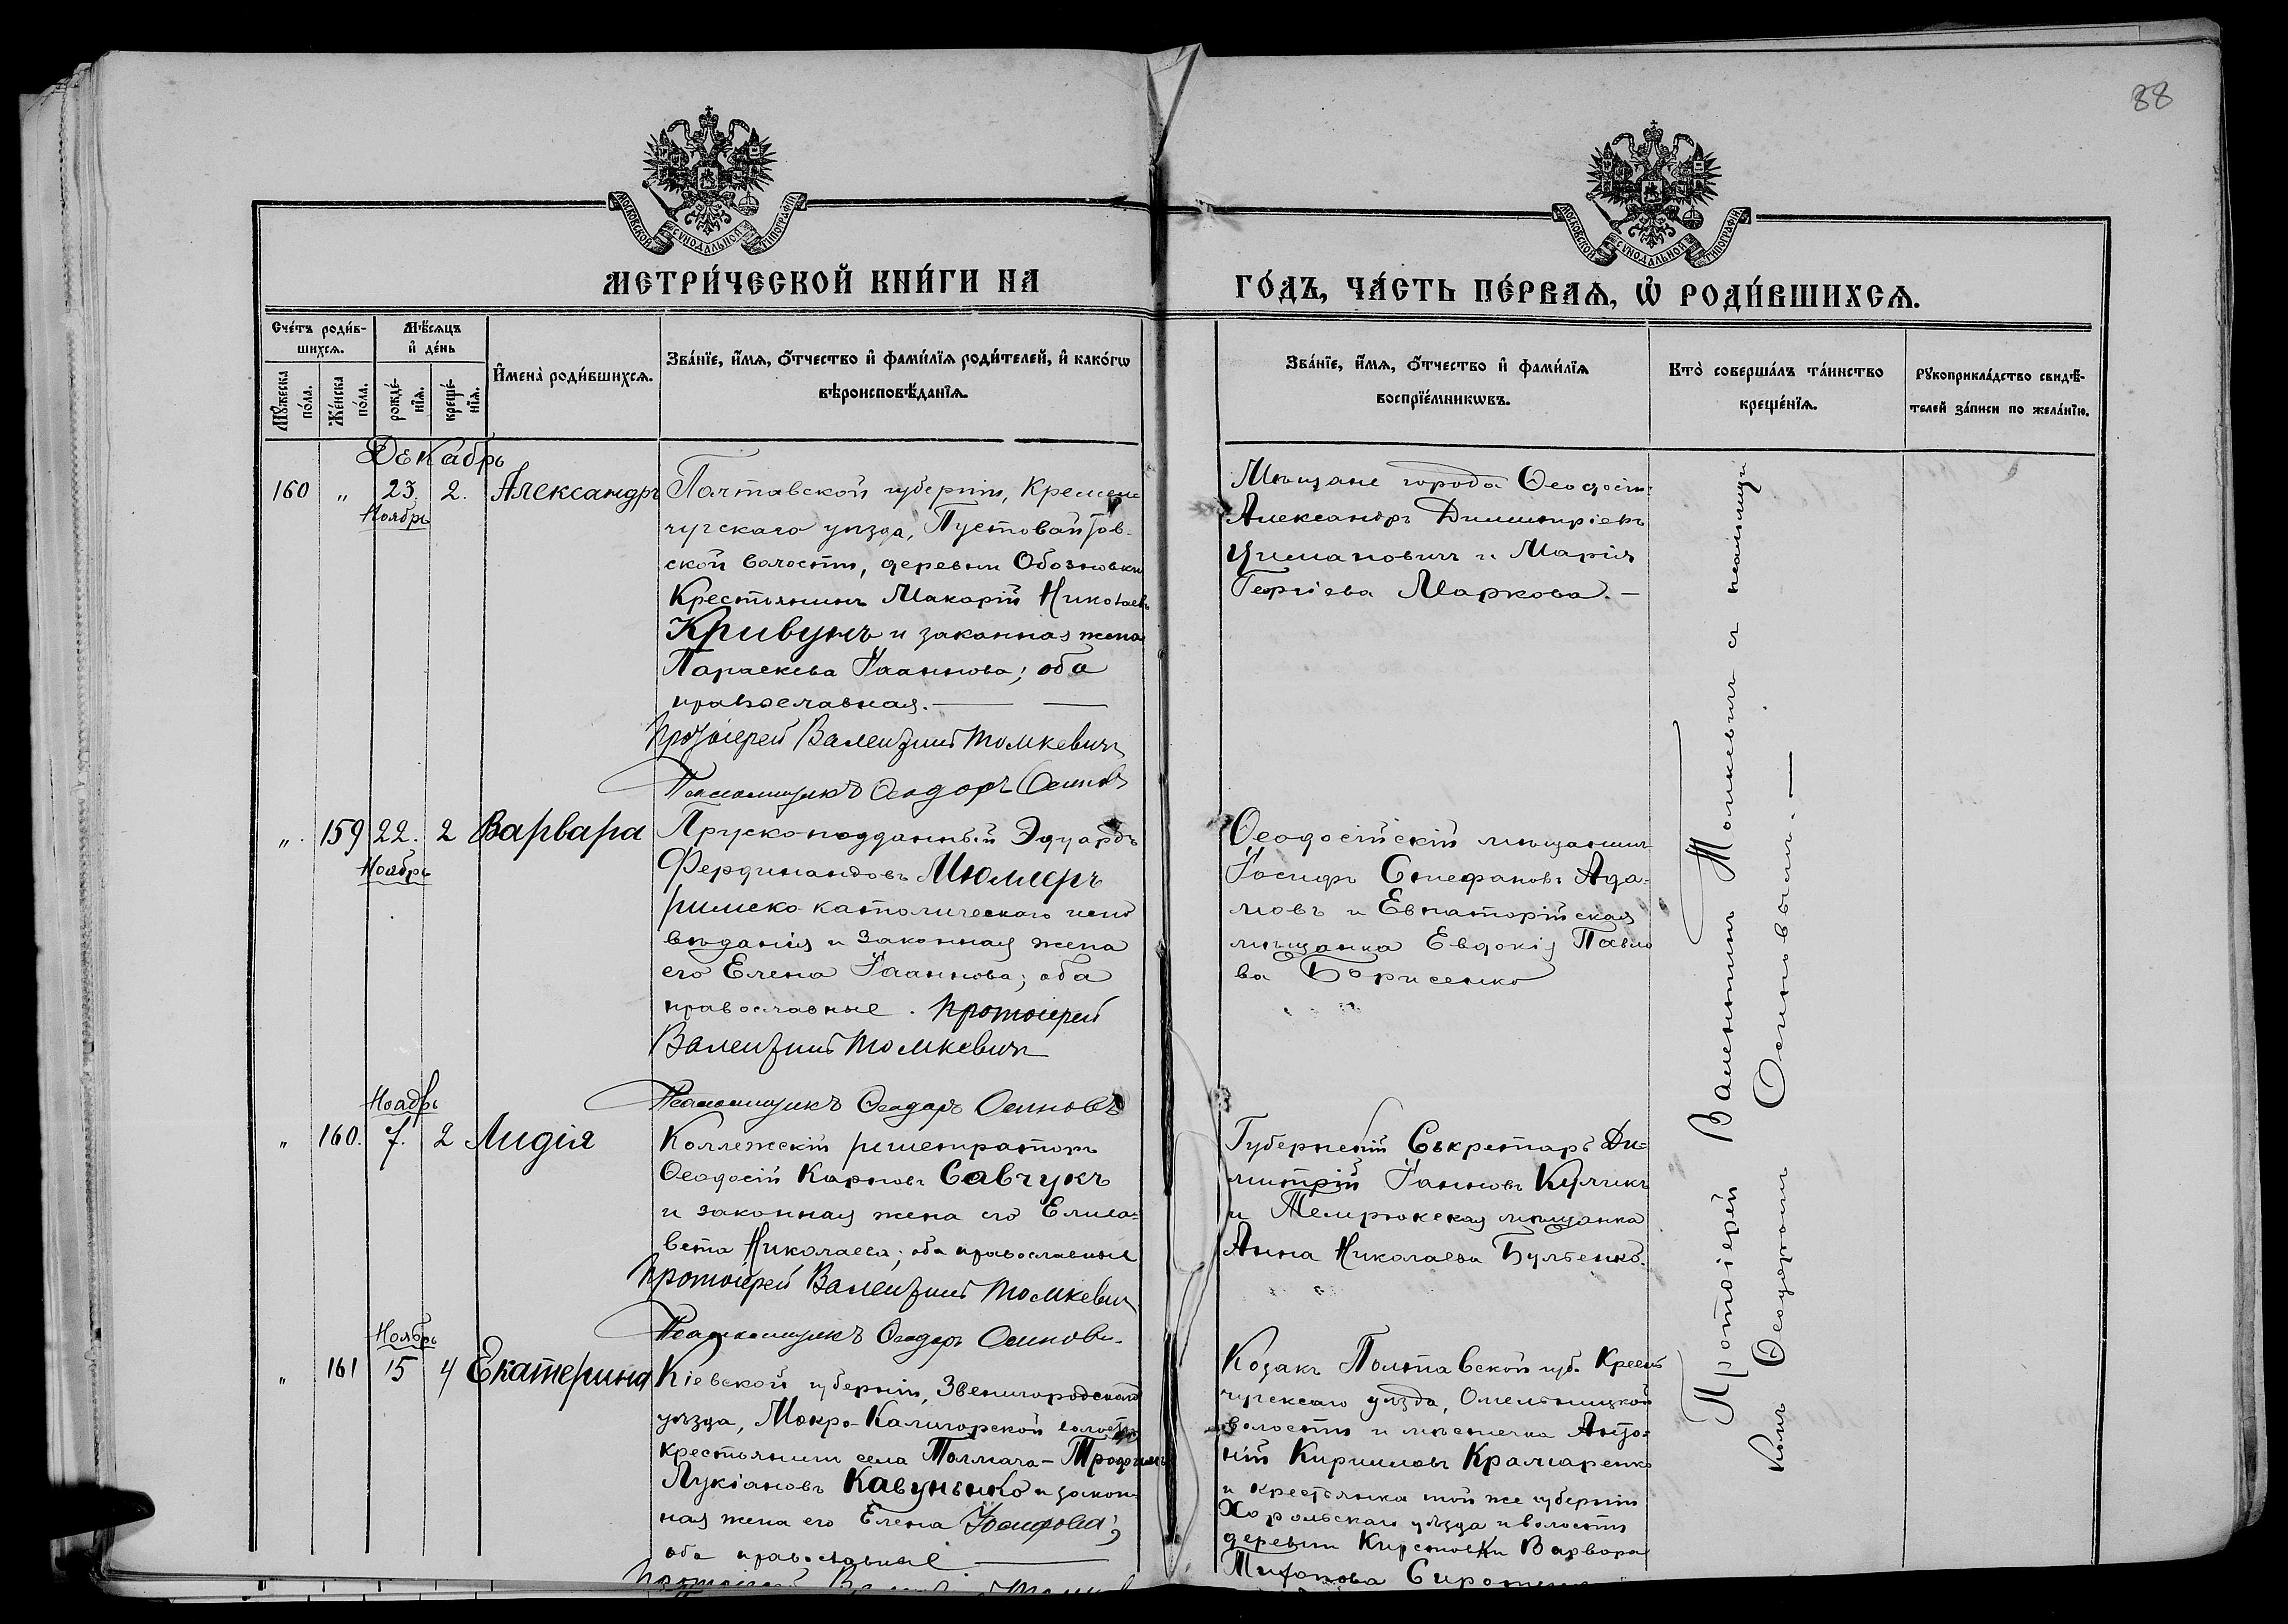 88
МОСКОВСКОЙ СѴНОДАЛЬНОЙ ТИПОГРАФІИ
МОСКОВСКОЙ СѴНОДАЛЬНОЙ ТИПОГРАФІИ
МЕТРИ́ЧЕСКОЙ КНИ́ГИ НА
ГО́ДЪ, ЧА́СТЬ ПЕ́РВАѦ, Ѡ҆ РОДИ́ВШИХСѦ.
Сче́тъ роди́в-
шихсѧ.
Мѣ́сѧцъ
и҆ де́нь
Мꙋ́жеска
по́ла.
Же́нска
по́ла.
рожде́-
нїѧ.
креще́-
нїѧ.
И҆мена̀ роди́вшихсѧ.
Зва́нїе, и҆́мѧ, ѻ҆́тчество и҆ фами́лїѧ роди́телей, и҆ како́гѡ
вѣроисповѣ́данїѧ.
Зва́нїе, и҆́мѧ, ѻ҆́тчество и҆ фами́лїѧ
воспрїе́мникѡвъ.
Кто̀ соверша́лъ та́инство
креще́нїѧ.
Рꙋкоприкла́дство свидѣ́-
телей за́писи по жела́нїю.
Декабрь
160 „ 23. 2. Александръ
Ноябрь
Полтавской губерніи, Кременчугскаго
уѣзда, Пустовайтов-
ской волости, деревни Обозновки
Крестьянинъ Макарій Николаевъ
Кривунъ и законная жена
Параскева Іоаннова; оба
православная.
Протоіерей Валентинъ Томкевичъ
Псаломщикъ Ѳеодоръ Осиповъ
Мѣщане города Ѳеодосіи
Александръ Димитріевъ
Циманович и Марія
Георгіева Маркова. —
„ 159 22. 2 Варвара
Ноябрь
Прускоподданный Эдуардъ
Фердинандовъ Мюллеръ
римско-католическаго испо
вѣданія и законная жена
его Елена Іоаннова; оба
православные. Протоіерей
Валентинъ Томкевичъ
Псаломщикъ Ѳеодоръ Осиповъ
Ѳеодосійскій мѣщанинъ
Іосифъ Стефановъ Ада-
мовъ и Евпаторійская
мѣщанка Евдокія Павло
ва Борисенко
Ноябрь
„ 160. 7. 2 Лидія
Коллежскій регистраторъ
Ѳеодосій Карповъ Савчукъ
и законная жена его Елиса-
вета Николаева; оба православные
Протоіерей Валентинъ Томкевичъ
Псаломщикъ Ѳеодоръ Осиповъ
Губернскій Секретарь Ди-
митрій Іоанновъ Куликъ
и Темрюкская мѣщанка
Анна Николаева Бульенко.
Ноябрь
„ 161 15 4 Екатерина
Кіевской губерніи, Звенигородскаго
уѣзда, Мокро-Калигорской волости
крестьянинъ села Толмача — Трофимъ
Лукіановъ Кавуненко и закон
ная жена его Елена Іосифова;
оба православные
Козакъ Полтавской губ. Кремен
чугскаго уѣзда, Омельницкой
волости и мѣстечка Анто-
ній Кирилловъ Крамаренко
и крестьянка той же губерніи
Хорольскаго уѣзда и волости
деревни Варвара
Протоіерей Валентинъ Томкевичъ съ псаломщи
комъ Ѳеодоромъ Осиповымъ. —